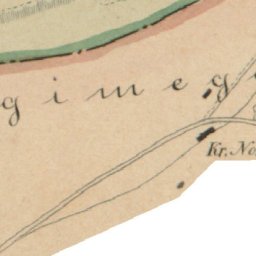 gimeg
Kr. No